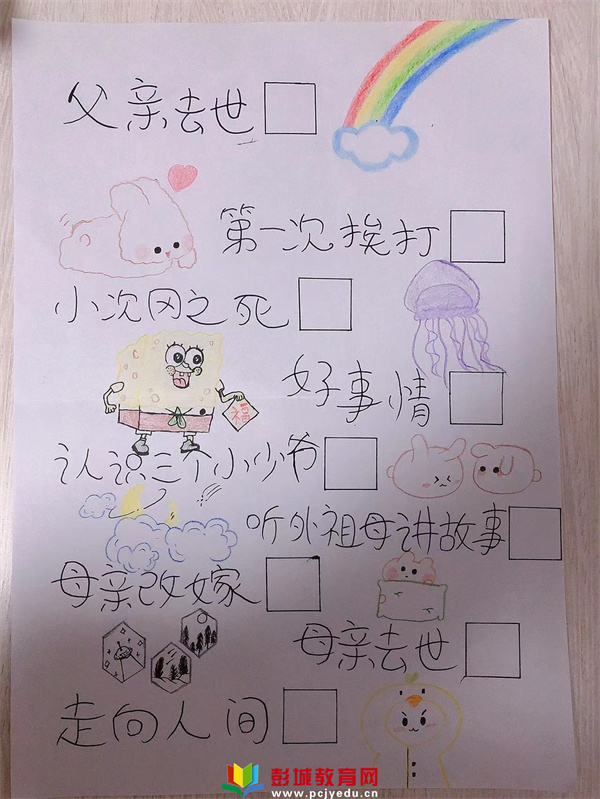 父亲去世
第一次挨打
小次冈之死
好事情
认识三个小少爷
听外祖母讲故事
母亲改嫁
母亲去世
走向人间
彭城教育网
www.pcjyedu.cn